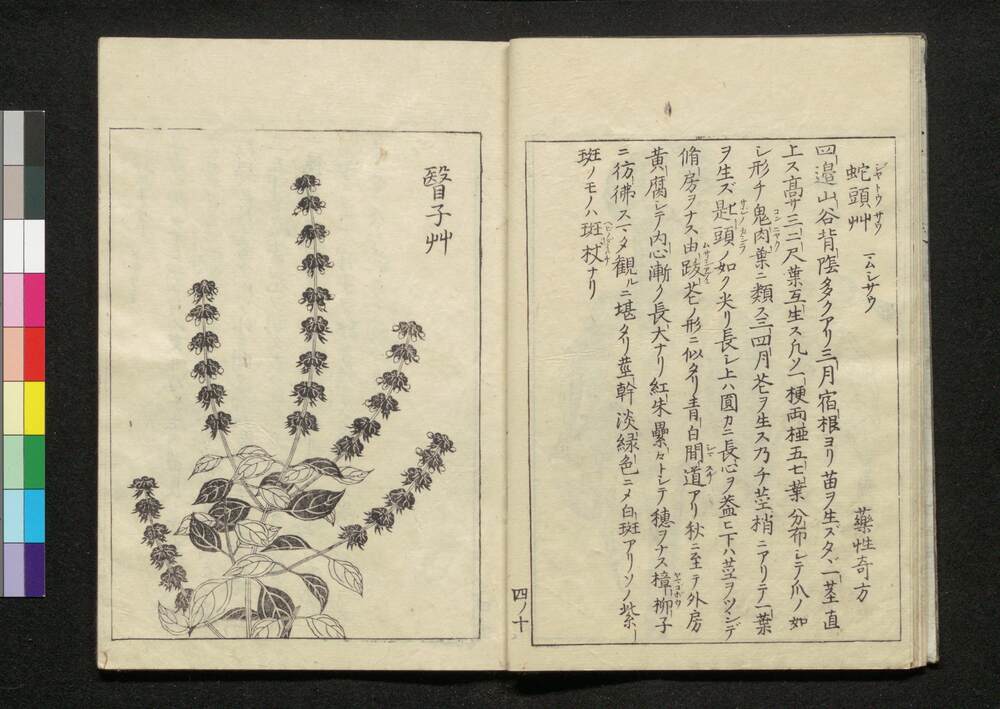 蛇頭艸 一ムシサウ 藥性奇方
ジャトウサウ
四邉山谷背陰多クアリ三月宿根ヨリ苗ヲ生ズタヾ一莖直
上ス髙サ三二尺葉互生ス凡ソ一梗両椏五七葉分布シテ爪ノ如
シ形チ鬼肉葉ニ類ス三四月花ヲ生ス乃チ莖梢ニアリテ一葉
コンニャク
ヲ生ズ匙頭ノ如ク尖リ長シ上ハ圓カニ長心ヲ盖ヒ下ハ莖ヲツヽンデ
サジノカシラ
脩房ヲナス由跋花ノ形ニ似タリ青白間道アリ秋ニ至テ外房
ムサシアブミ
シマスヂ
黄腐シテ内心漸ク長大ナリ紅朱纍々トシテ穗ヲナス樟柳子
ヤマゴボウ
ニ彷彿スマタ観ルニ堪タリ莖幹淡緑色ニメ白斑アリソノ紫
斑ノモノハ斑杖ナリ
四ノ十
瞖子艸